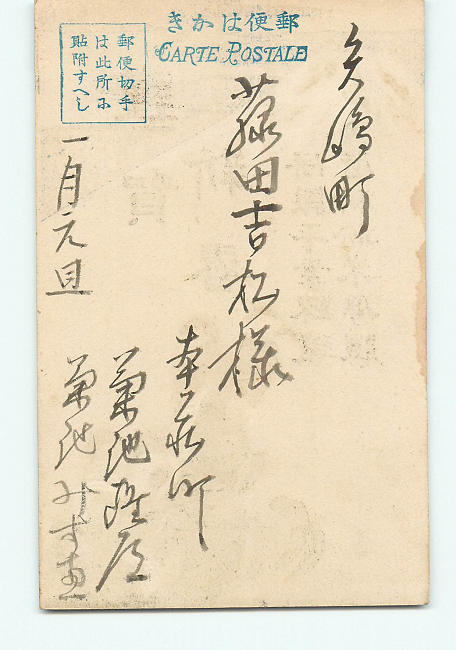 郵便はかき
CARTE POSTALE
郵便切手
は此所に
貼附すへし
矢嶋町
藤田吉松様
本荘町
菊池
菊池み
一月元旦